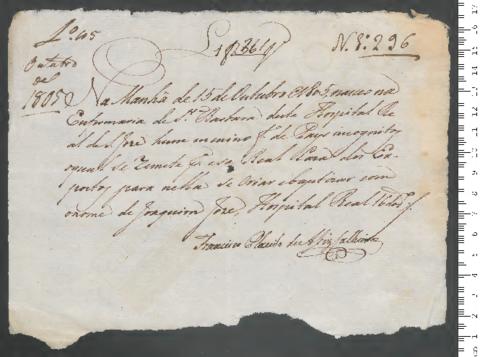 1805
Outubro
de
1805
N.º 296
Na Manhã de 15 de Outubro de 1805, nasceu na
Enfermaria de S.ta Barbara deste Hospital Re-
al de S. Jose hum menino f.º de Pays incognitos
o qual se remete p.ª essa Real Caza dos Ex-
postos para nella se criar e baptizar com
o nome de Joaquim Jose, Hospital Real
Francisco de Assiz